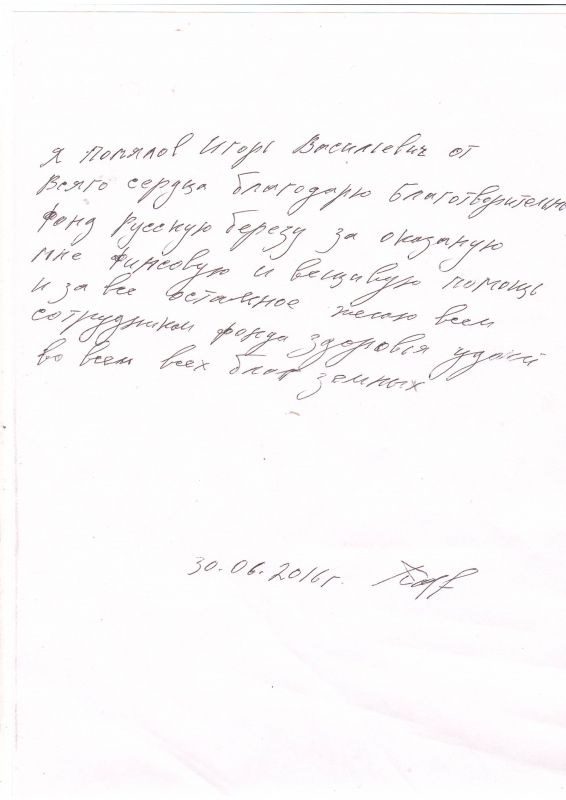 Я Помялов Игорь Васильевич от
всяго сердца благодарю благотворительно
Фонд Русскую березу за оказаную
мне Финсовую и вещивую помощь
и за все остальное желаю всем
сотрудникам фонда здоровья удачи
во всем всех благ земных
30.06.2016г.